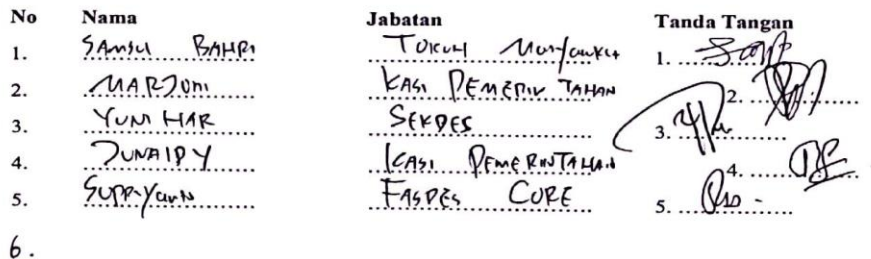 No Nama Jabatan Tanda Tangan
1. SAMSUL BAHRI TOKOH Masyarakat 1.
2. MARJONI KASI PEMERINTAHAN 2.
3. YUNI HAR SEKDES 3.
4. JUNAIDY KASI PEMERINTAHAN 4.
5. FASDES CORE 5.
6.